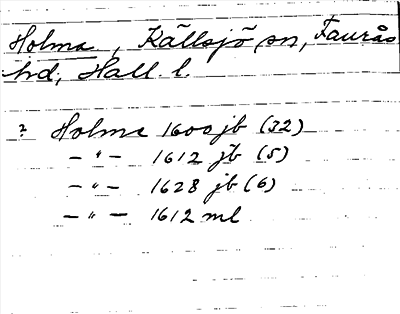 Holma, Källsjö sn, Faurås
hd, Hall. l.
? Holma 1600 jb (32)
— " — 1612 jb (5)
— " — 1628 jb (6)
— " — 1612 ml